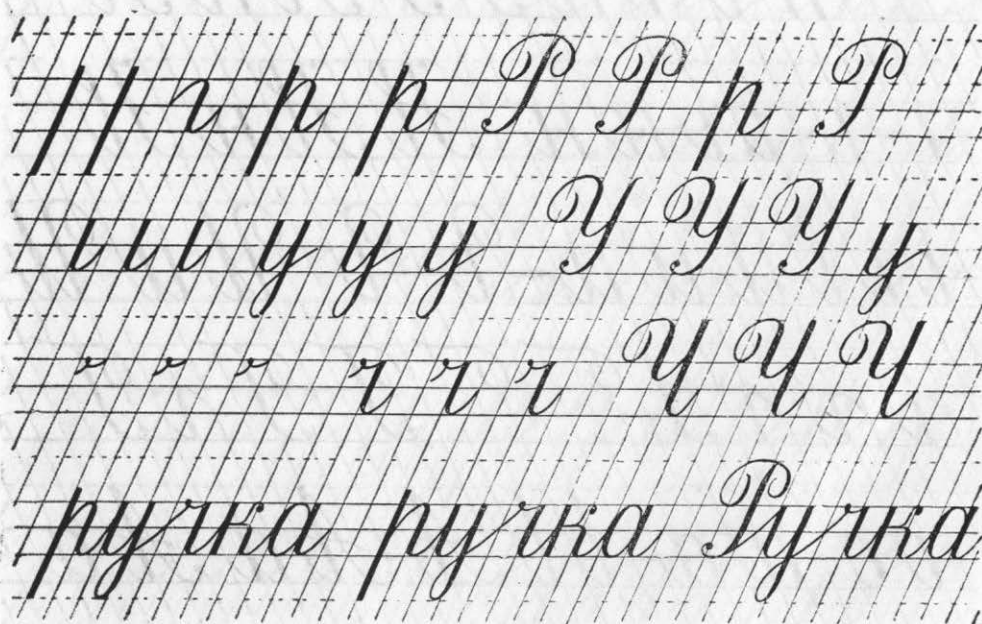 р р Р Р р Р
у у у У У У у
ч ч ч Ч Ч Ч
ручка ручка Ручка